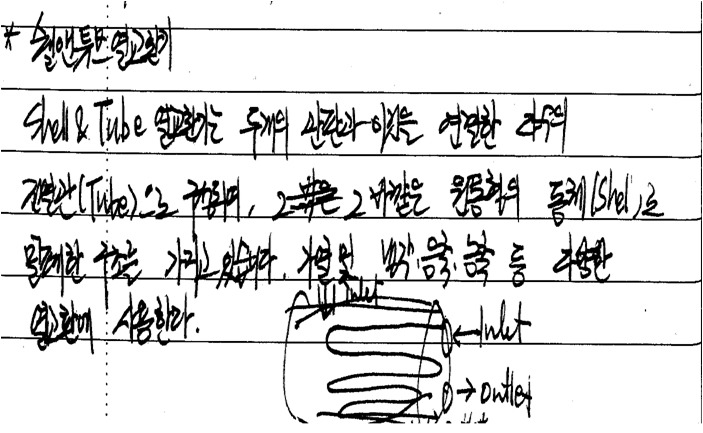 * 쉘앤튜브열교환기
Shell & Tube 열교환기는 두개의 관판과 이것을 연결한 다수의
전열관(Tube)으로 구성되며, 2 2 바깥을 원통형의 동체(Shel)로
밀폐한 구조를 가지고 있습니다. 가열 및 냉각, 응축, 농축 등 다양한
열교환에 사용한다.
Inlet
← Inlet
→ outlet